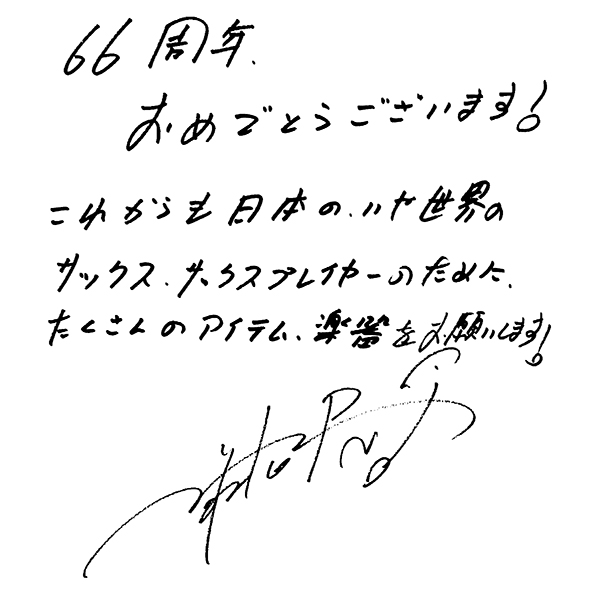 66周年、
おめでとうございます!
これからも日本の、いや世界の
サックス、サックスプレイヤーのために、
たくさんのアイテム、楽器をお願いします!